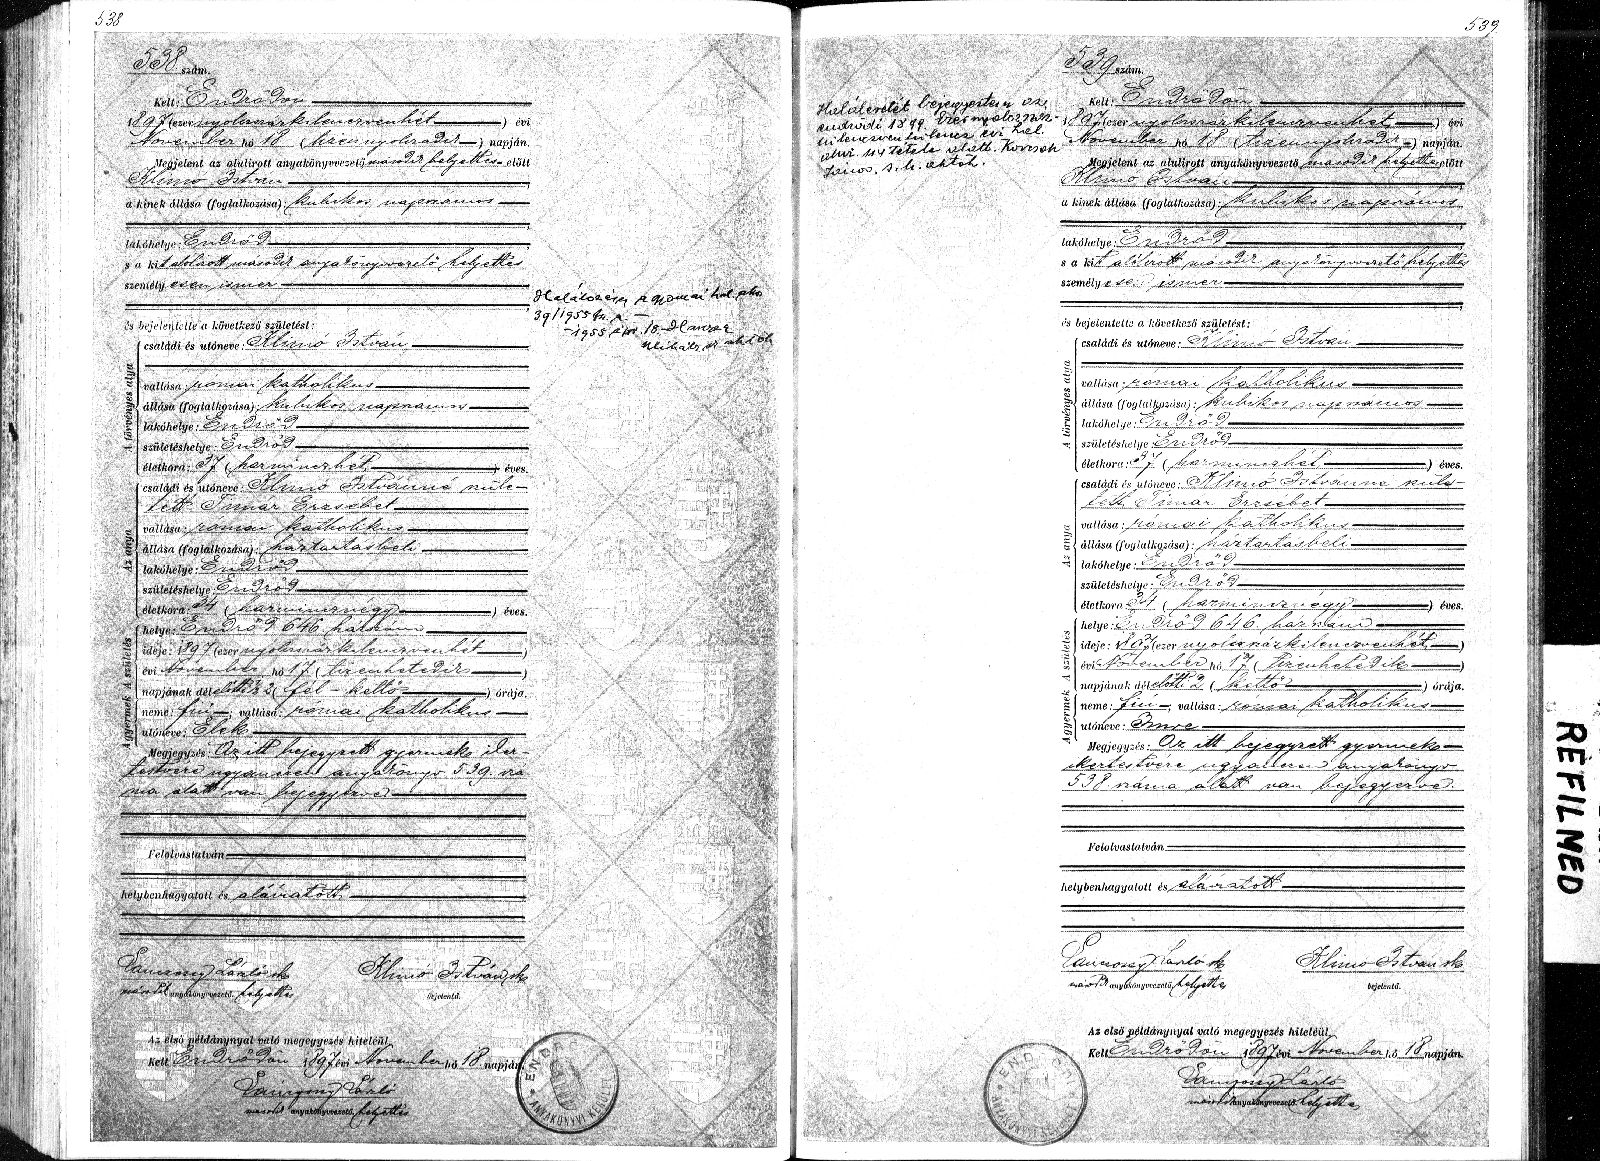 538
538 szám.
Kelt: Endrődön
1897 (ezer nyolcszázkilenczvenhét) évi
November hó 18 (tizennyolcadik) napján.
Megjelent az alulirott anyakönyvvezető második helyettes előtt
Klimó István
a kinek állása (foglalkozása): kubikos napszámos
lakóhelye: Endrőd
s a kit alólirott második anyakönyvvezető helyettes
személyesen ismer
és bejelentette a következő születést:
A törvényes atya
családi és utóneve: Klimó István
vallása: római katholikus
állása (foglalkozása): kubikos napszámos
lakóhelye: Endrőd
születéshelye: Endrőd
életkora: 37 (harminczhét) éves.
Az anya
családi és utóneve: Klimó Istvánné szüle-
tett Timár Erzsébet
vallása: római katholikus
állása (foglalkozása): háztartásbeli
lakóhelye: Endrőd
születéshelye: Endrőd
életkora: 34 (harmincznégy) éves.
A gyermek A születés
helye: Endrőd 646 házszám
ideje: 1897 (ezer nyolcszázkilenczvenhét)
évi November hó 17 (tizenhetedik)
napjának délelőtti 1/2 2 (fél-kettő) órája.
neme: fiú vallása: római katholikus
utóneve: Elek
Megjegyzés: Az itt bejegyzett gyermek iker-
testvére ugyanezen anyakönyv 539. szá
ma alatt van bejegyezve
Felolvastatván
helybenhagyatott és aláiratott
László sk Klimó István sk
második anyakönyvvezető helyettes bejelentő.
Az első példánynyal való megegyezés hiteléül
Kelt Endrődön 1897 évi November hó 18 napján.
László
második anyakönyvvezető helyettes
39/1955
539
539 szám.
Halálesetét bejegyeztem az
endrődi 1899 Ezernyolcszáz-
kilenczvenkilencz évi hal.
akvi. 114 tétele alatt. Kovcsek
János. s. h. aktol.
Kelt: Endrődön
1897 (ezer nyolcszázkilenczvenhét) évi
November hó 18 (tizennyolcadik) napján.
Megjelent az alulirott anyakönyvvezető második helyettes előtt
Klimó István
a kinek állása (foglalkozása): kubikos napszámos
lakóhelye: Endrőd
s a kit alólirott második anyakönyvvezető helyettes
személyesen ismer
és bejelentette a következő születést:
A törvényes atya
családi és utóneve: Klimó István
vallása: római katholikus
állása (foglalkozása): kubikos napszámos
lakóhelye: Endrőd
születéshelye: Endrőd
életkora: 37 (harminczhét) éves.
Az anya
családi és utóneve: Klimó Istvánné szüle-
tett Timár Erzsébet
vallása: római katholikus
állása (foglalkozása): háztartásbeli
lakóhelye: Endrőd
születéshelye: Endrőd
életkora: 34 (harmincznégy) éves.
A gyermek A születés
helye: Endrőd 646. házszám
ideje: 1897 (ezer nyolcszázkilenczvenhét)
évi November hó 17 (tizenhetedik)
napjának délelőtti 2 (kettő) órája.
neme: fiú, vallása: római katholikus
utóneve: Imre
Megjegyzés: Az itt bejegyzett gyermek
ikertestvére ugyanezen anyakönyv
538 száma alatt van bejegyezve.
Felolvastatván
helybenhagyatott és aláiratott
László sk Klimó István sk
második anyakönyvvezető helyettes bejelentő.
Az első példánynyal való megegyezés hiteléül
Kelt Endrődön 1897 évi November hó 18 napján.
László
második anyakönyvvezető helyettes
REFILMED